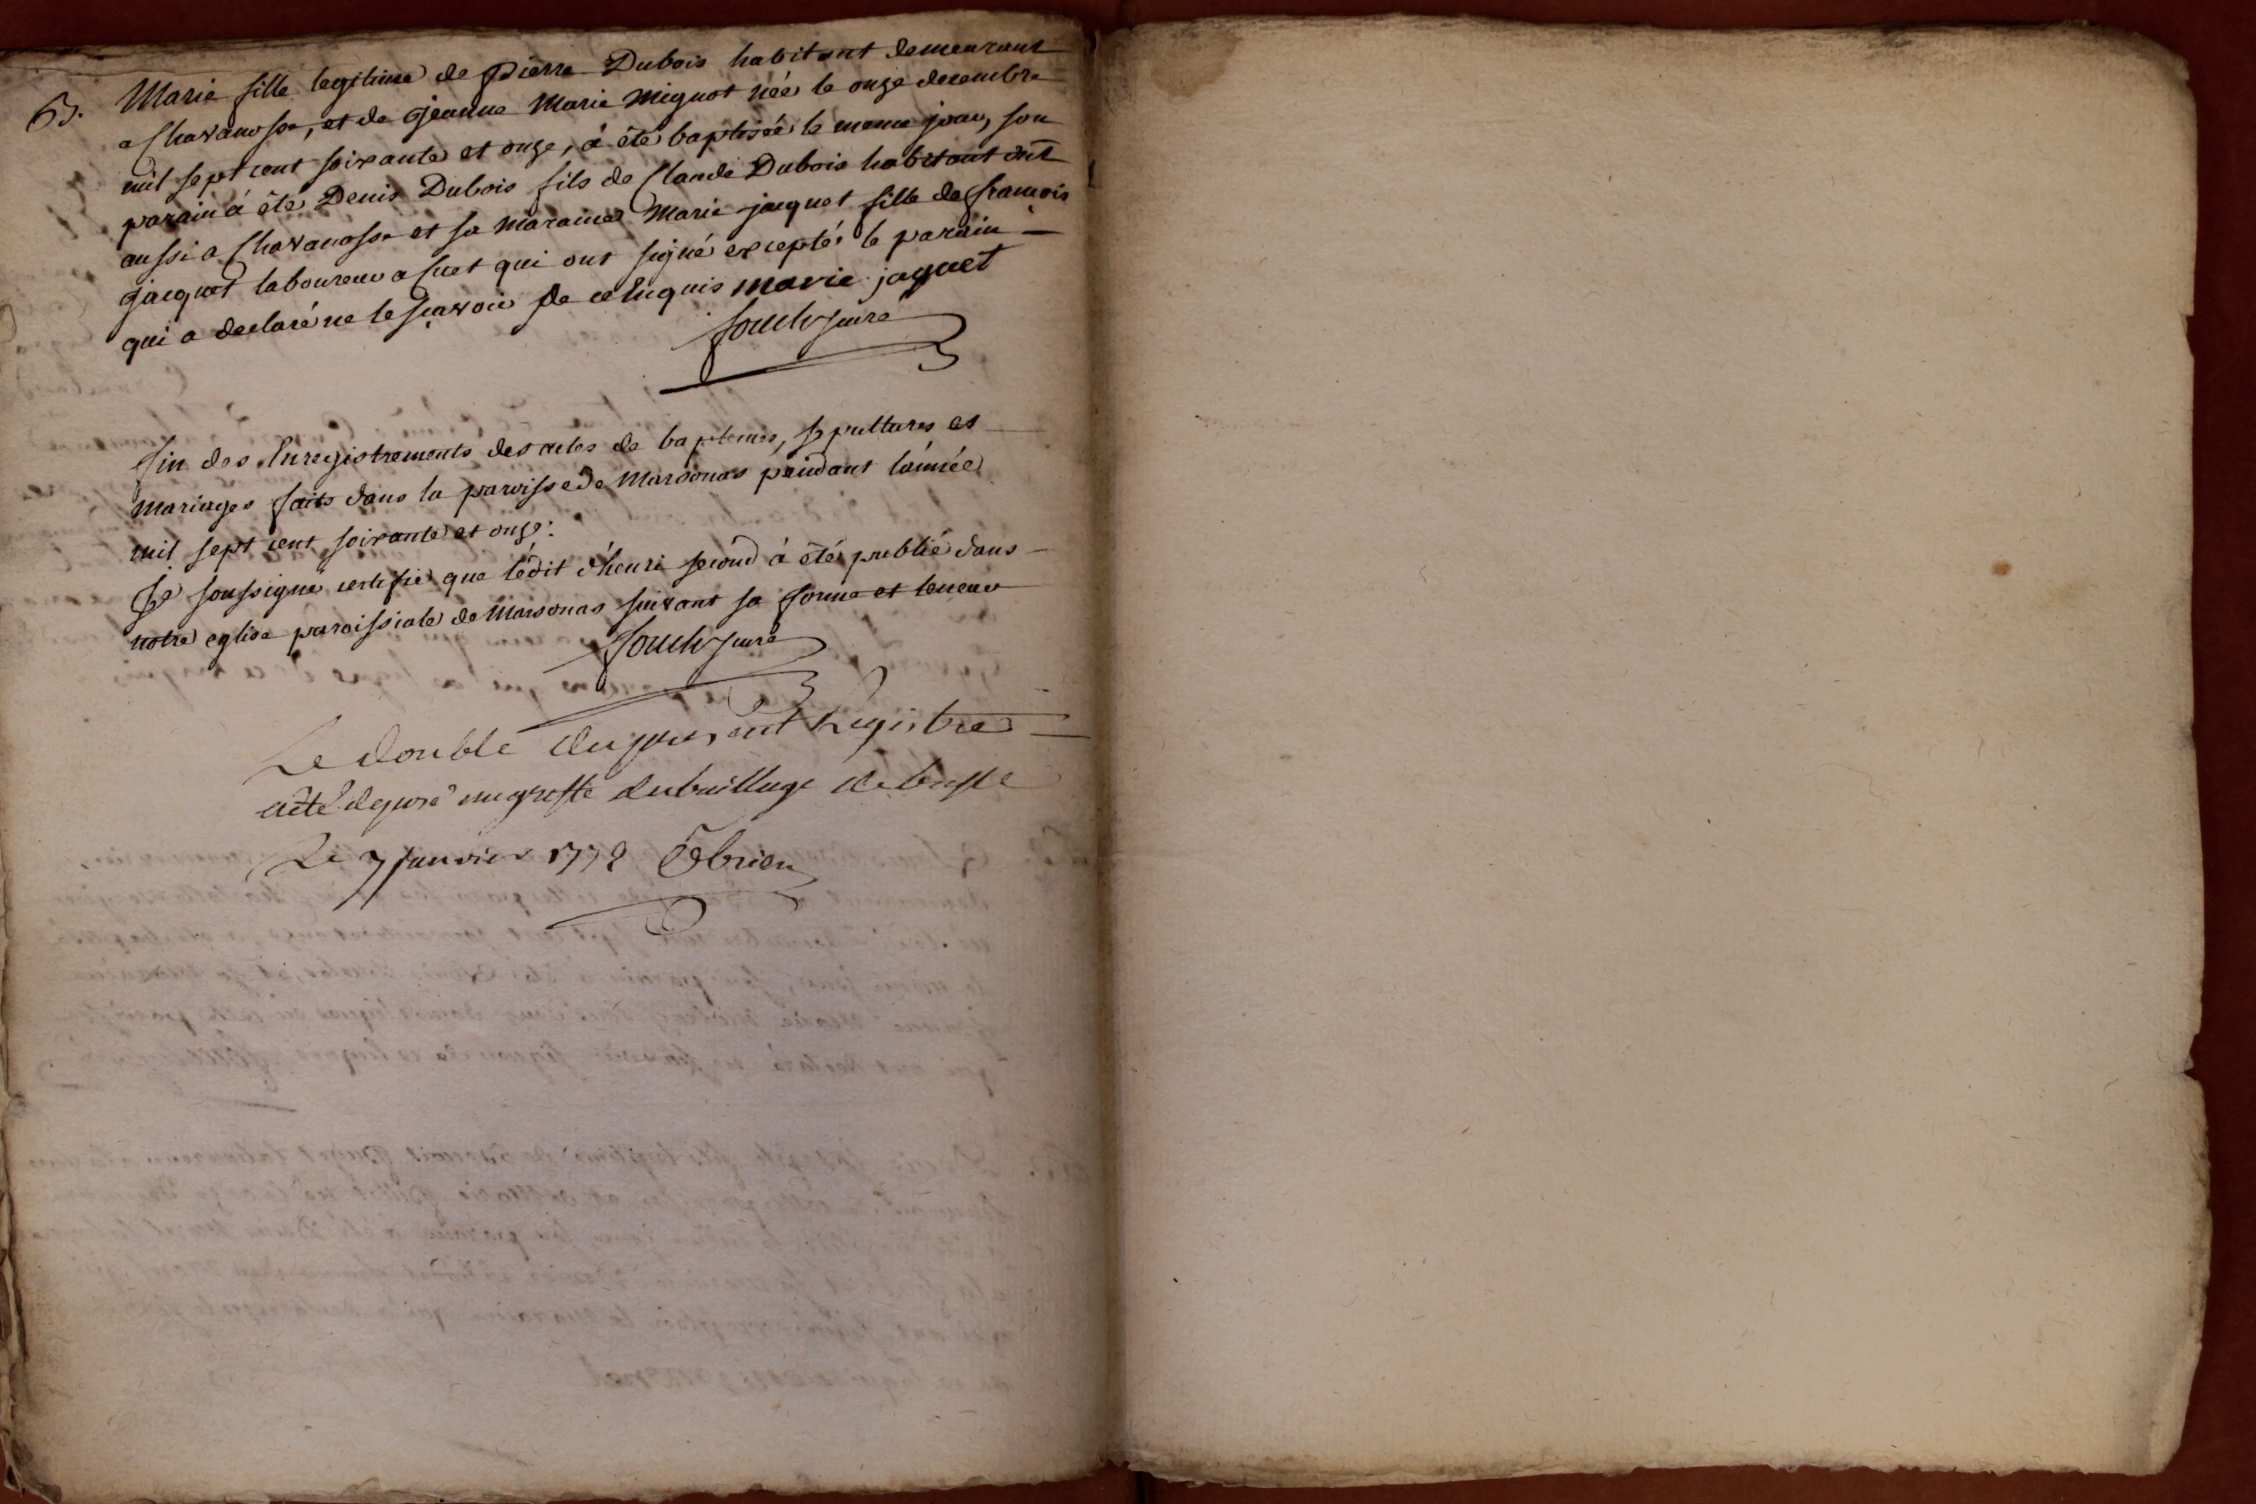 63. Marie fille legitime de Pierre Dubois habitant demeurant
a Chavanosse, et de Jeanne Marie Mignot née le onze decembre
mil sept cent soixante et onze, à été baptisée le meme jour, son
parain à été Denis Dubois fils de Claude Dubois habitant
aussi a Chavanosse et sa maraine Marie jacquet fille de francois
jacquet laboureur a Cuet qui ont signé excepté le parain
qui a declaré ne le sçavoir de ce Enquis marie jaquet
curé
fin des Enregistrements des actes de baptemes, sepultures et
mariages faits dans la paroisse de Marsonas pendant l'année
mil sept cent soixante et onze:
Je soussigné certifie que l'édit d'henri second à été publié dans
notre eglise paroissiale de Marsonas suivant sa forme et teneur
curé
Le double du present Registre
a été deposé au greffe du bailliage de bresse
Le 7 janvier 1772